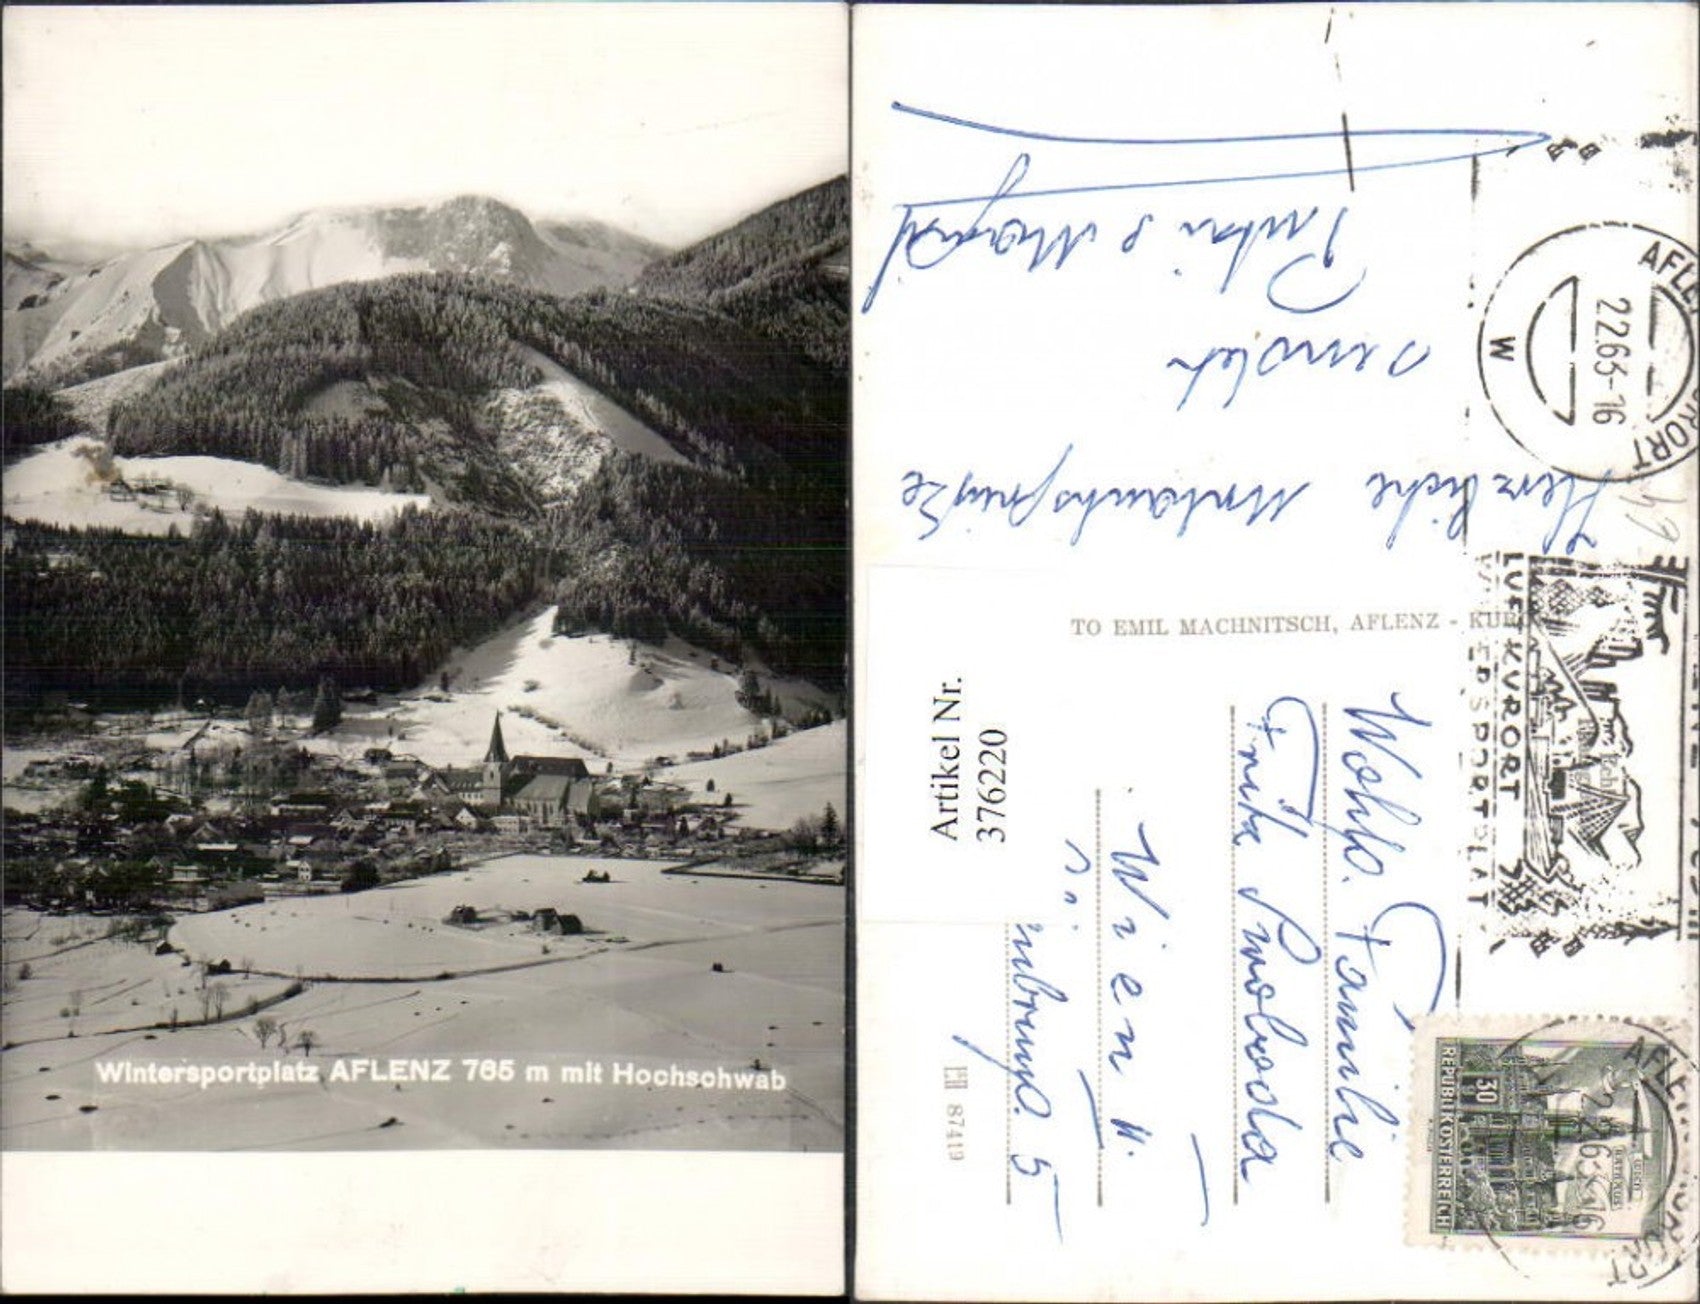 Wintersportplatz AFLENZ 765 m mit Hochschwab
Herzliche Urlaubsgrüße
senden
TO EMIL MACHNITSCH, AFLENZ - KUR
Artikel Nr.
3762220
Wohlg. Familie
Fritz Swoboda
Wien II.
5
87419
AFLENZ KURORT
22.6.63-16
W
LUFTKURORT
WINTERSPORTPLATZ
REPUBLIK ÖSTERREICH
30